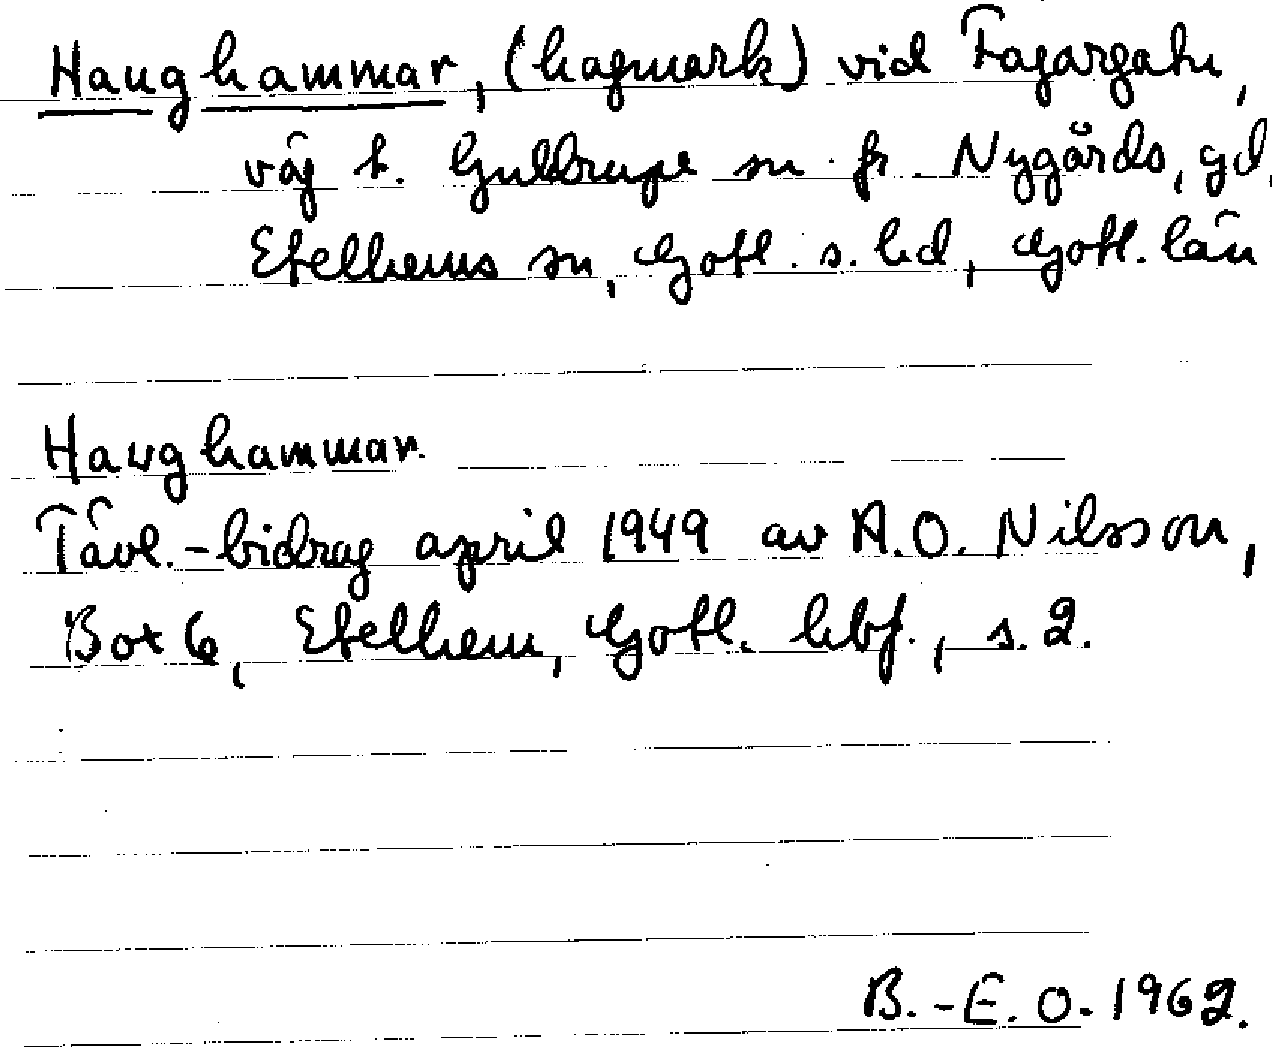 Haughammar, (hagmark) vid Fagargatu,
väg t. Guldrupe sn fr. Nygårds, gd,
Etelhems sn, Gotl. s. hd, Gotl. län
Haughammar.
Tävl.-bidrag april 1949 av A.O. Nilsson,
Box 6, Etelhem, Gotl. hbf., s. 2.
B.-E. O. 1962.